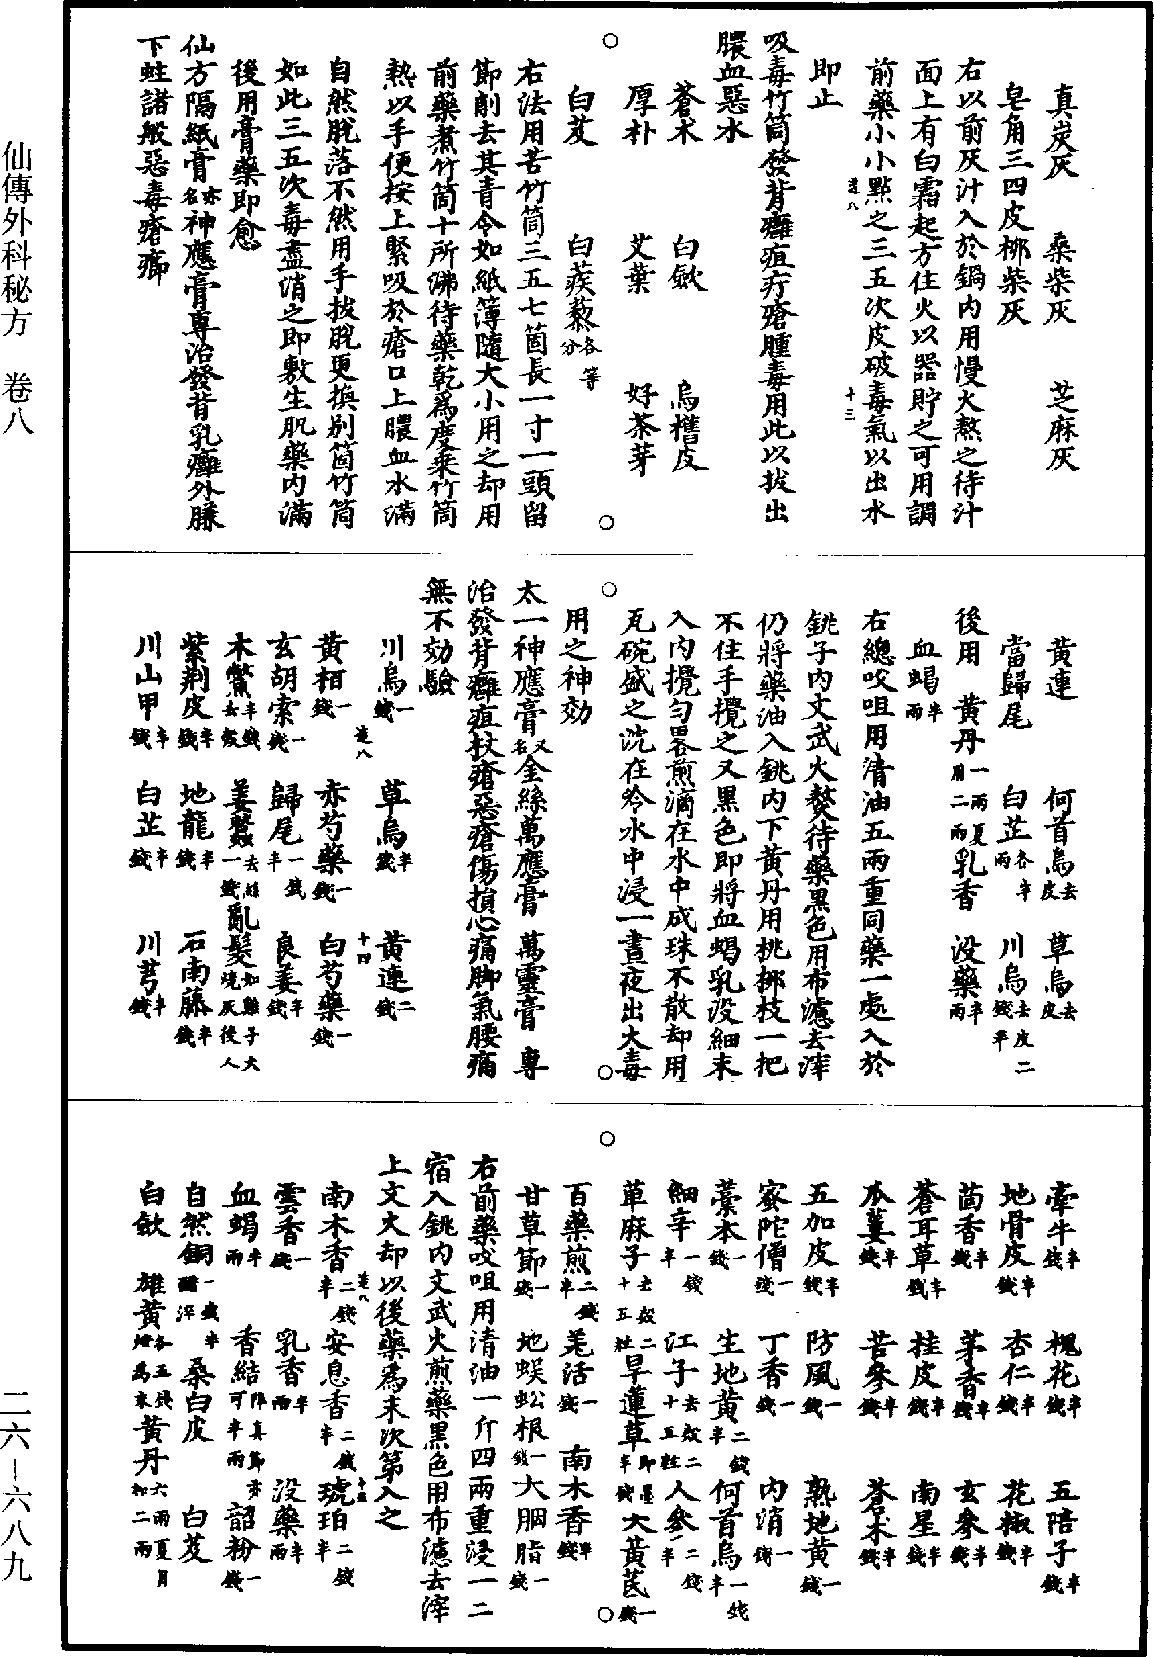 仙傳外科秘方 卷八
二六—六八九
真炭灰 桑柴灰 芝麻灰
皂角三四皮 梛柴灰
右以前灰汁入於鍋內用慢火熬之待汁
面上有白霜起方住火以器貯之可用調
前藥小小點之三五次皮破毒氣以出水
即止
吸毒竹筒發背癰疽疔瘡腫毒用此以拔出
膿血惡水
蒼朮 白歛 烏櫓皮
厚朴 艾葉 好茶芽
白芨 白蒺藜各等分
右法用苦竹筒三五七箇長一寸一頭留
節削去其青令如紙薄隨大小用之却用
前藥煮竹筒十所沸待藥乾為度乘竹筒
熱以手便按上緊吸於瘡口上膿血水滿
自然脫落不然用手拔脫更換別箇竹筒
如此三五次毒盡消之即敷生肌藥內滿
後用膏藥即愈
仙方隔紙膏亦名神應膏專治發背乳癰外臁
下蛀諸般惡毒瘡癤
黃連 何首烏去皮 草烏去皮
當歸尾 白芷各半兩 川烏去皮二錢半
後用 黃丹一兩夏月二兩 乳香 沒藥半兩
血蝎半兩
右總㕮咀用清油五兩重同藥一處入於
銚子內文武火熬待藥黑色用布濾去滓
仍將藥油入銚內下黃丹用桃梛枝一把
不住手攪之又黑色即將血蝎乳沒細末
入內攪勻畧煎滴在水中成珠不散却用
瓦碗盛之沈在冷水中浸一晝夜出火毒
用之神効
太一神應膏又名金絲萬應膏 萬靈膏 專
治發背癰疽杖瘡惡瘡傷損心痛脚氣腰痛
無不効驗
川烏一錢 草烏半錢 黃連二錢
黃栢一錢 赤芍藥一錢 白芍藥一錢
玄胡索一錢 歸尾一錢半 良姜半錢
木鱉半錢去殼 姜蠶去絲一錢 亂髮如雞子大燒灰後入
紫荊皮半錢 地龍半錢 石南藤半錢
川山甲半錢 白芷半錢 川芎半錢
牽牛半錢 槐花半錢 五陪子半錢
地骨皮半錢 杏仁半錢 花椒半錢
茴香半錢 茅香半錢 玄參半錢
蒼耳草半錢 桂皮半錢 南星半錢
瓜蔞半錢 苦參半錢 蒼朮半錢
五加皮半錢 防風一錢 熟地黃一錢
蜜陀僧一錢 丁香一錢 內消一錢
藁本一錢 生地黃二錢半 何首烏一錢半
細辛一錢半 江子去殼二十五粒 人參二錢半
萆麻子去殼二十五粒 旱蓮草即墨半錢 大黃芪一錢
百藥煎二錢半 羌活一錢 南木香半錢
甘草節一錢 地蜈蚣根一錢 大胭脂一錢
右前藥㕮咀用清油一斤四兩重浸一二
宿入銚內文武火煎藥黑色用布濾去滓
上文火却以後藥為末次第入之
南木香二錢半 安息香二錢半 琥珀二錢半
雲香一錢 乳香半兩 沒藥半兩
血蝎半兩 香結降真節亦可半兩 韶粉一錢
自然銅一錢半醋淬 桑白皮 白芨
白歛 雄黃各五錢為末 黃丹六兩夏月加二兩